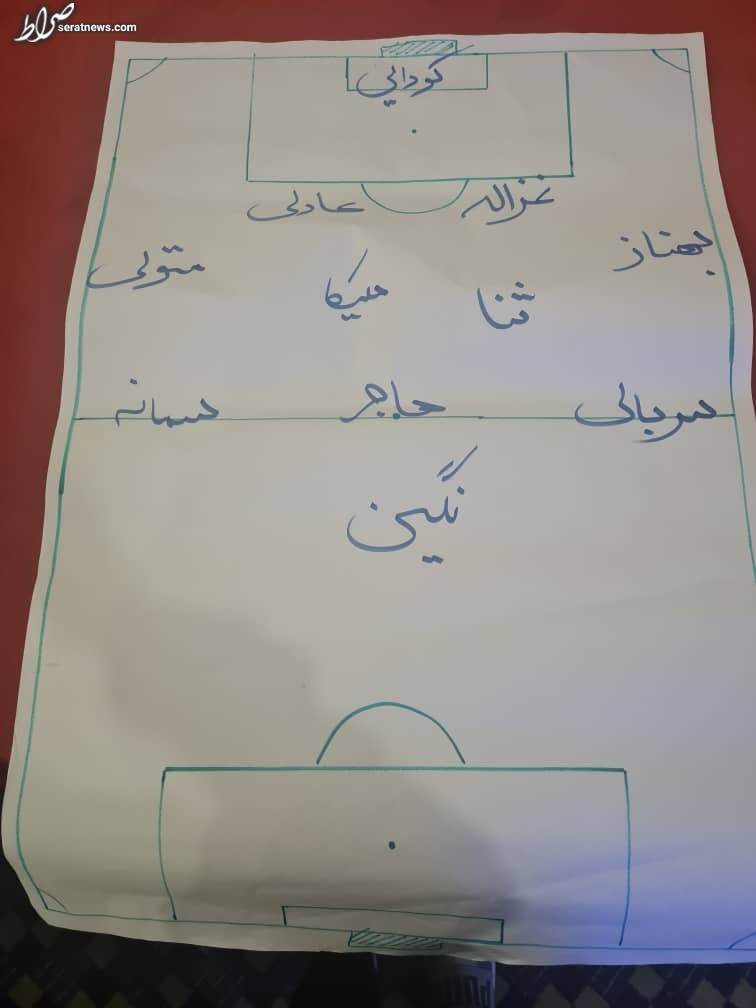 صراط
seratnews.com
کودالي
غزاله عادلی
بهناز متولی
ثنا ملیکا
سربالی هاجر سمانه
نگین